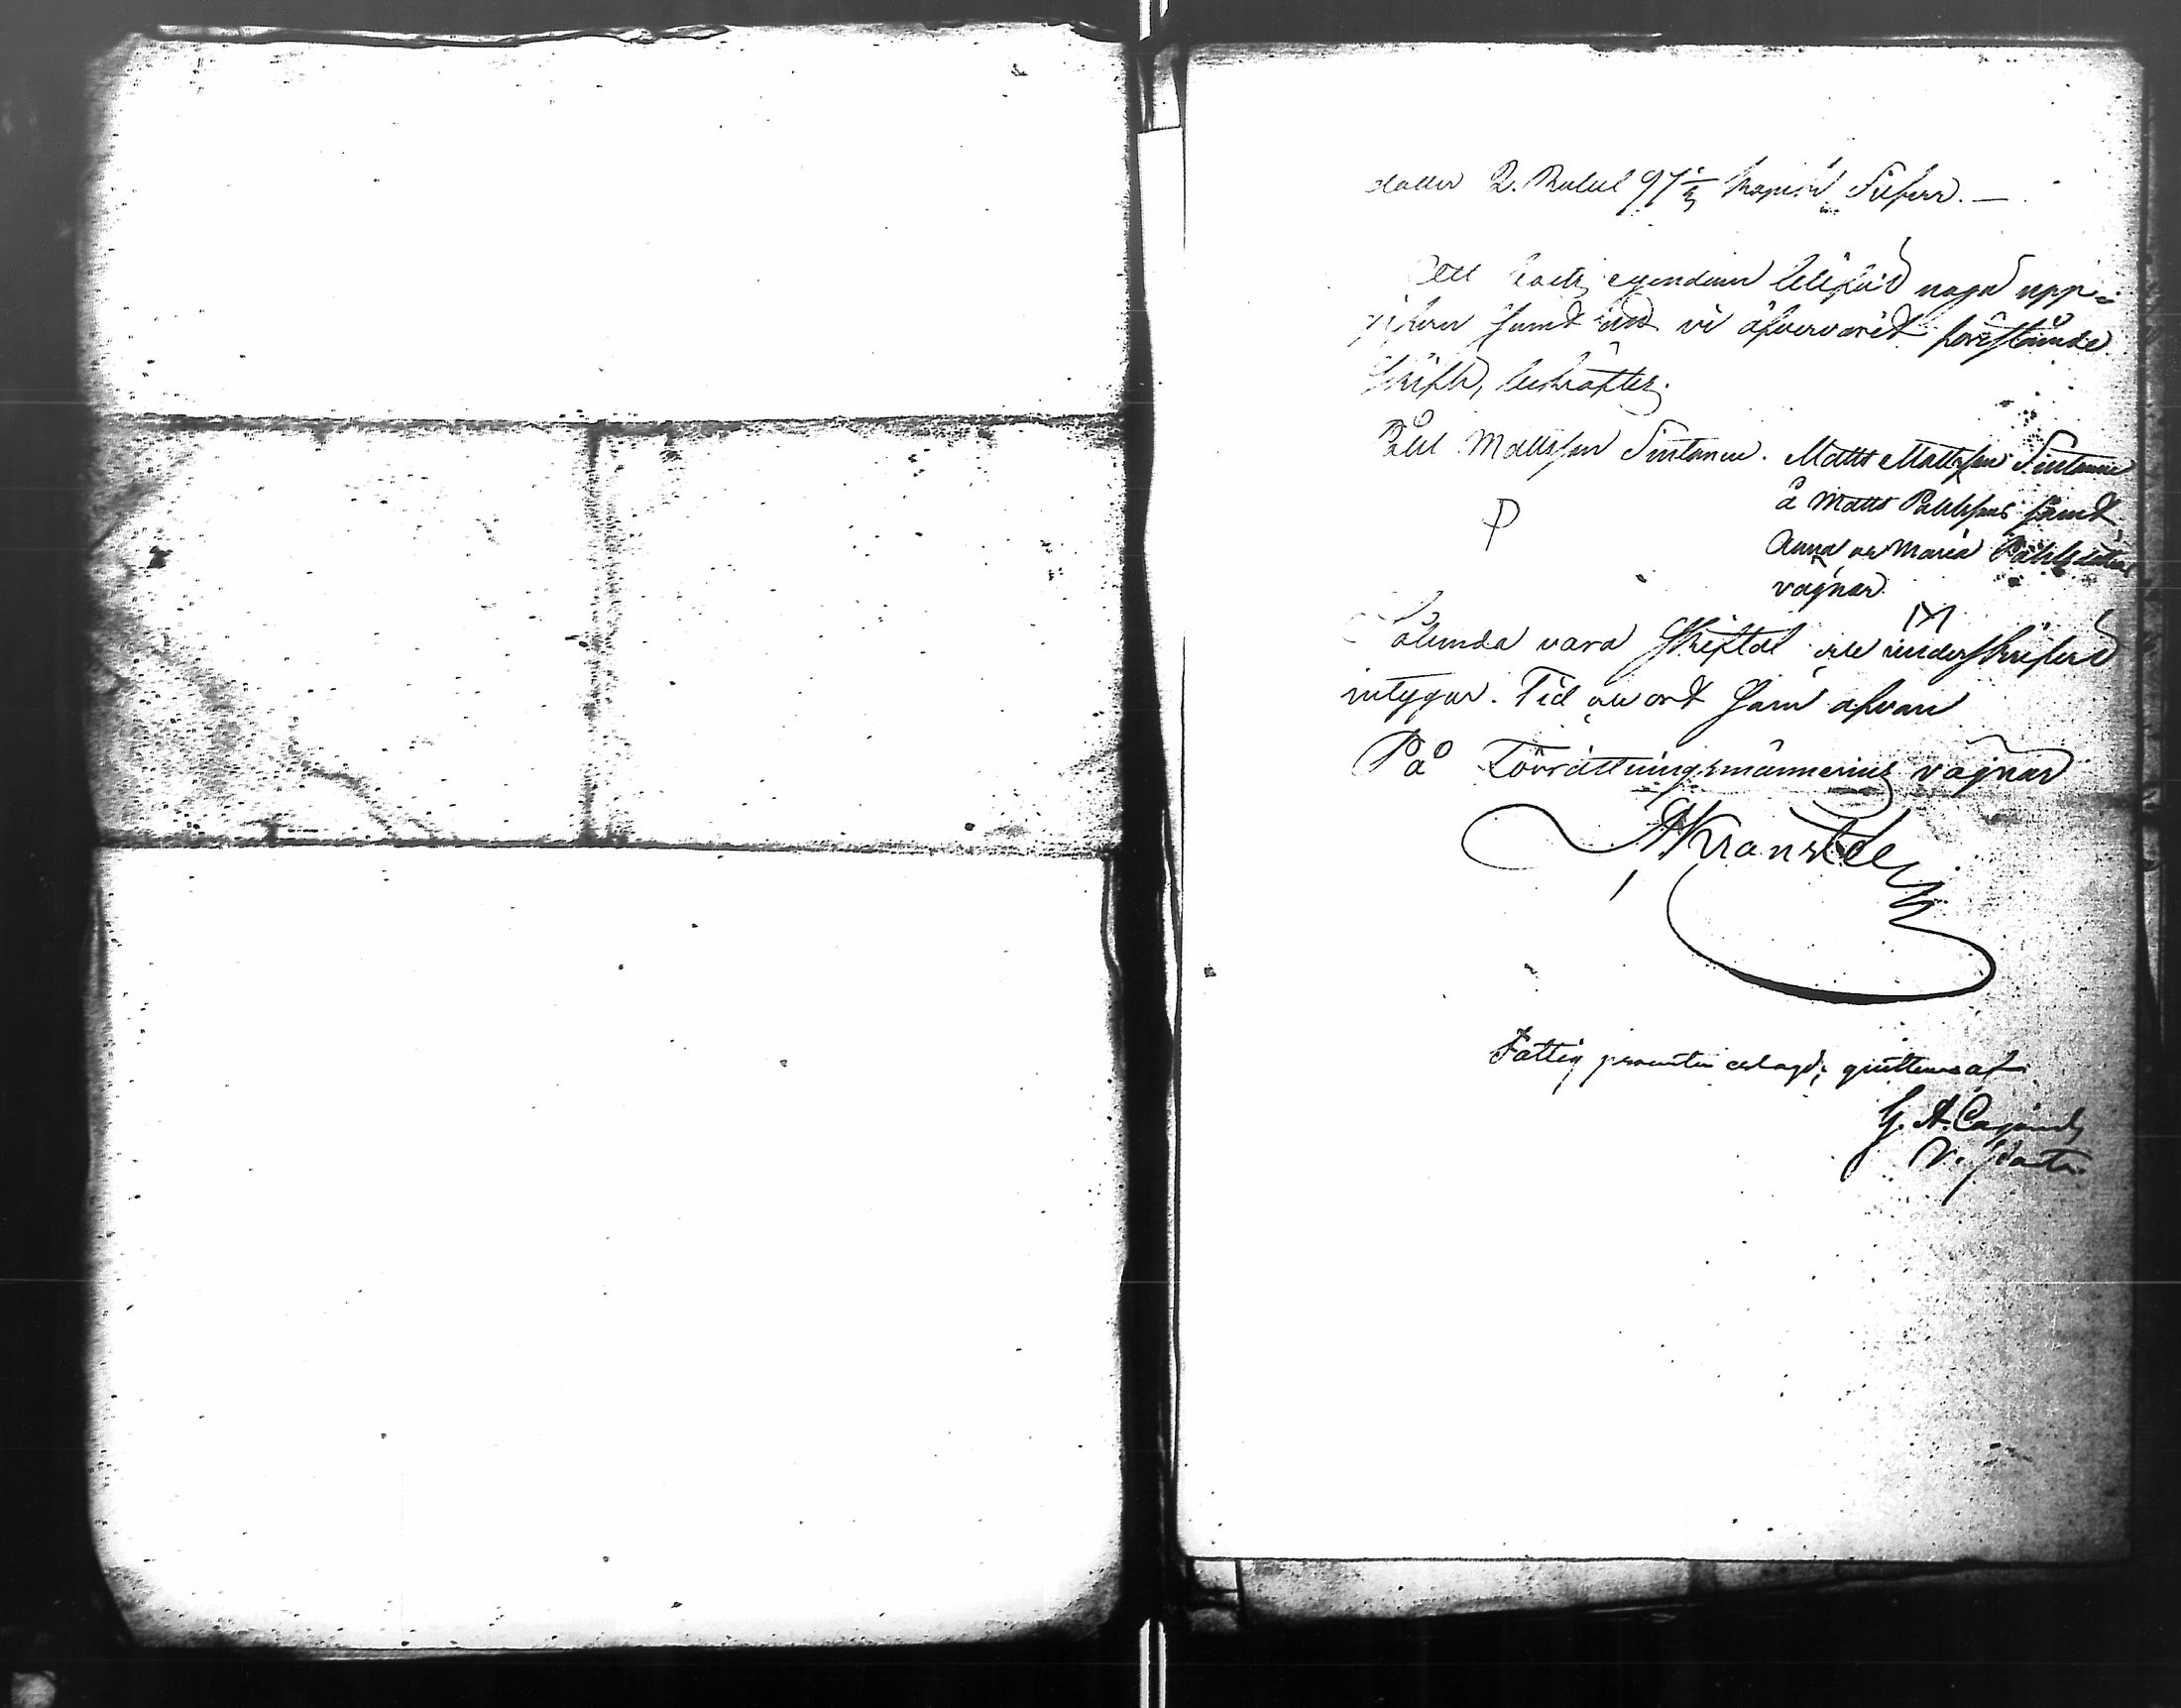 eller 2. Rubel 97 1/3 kopek Silfver. —
Att boets egendom blifvit noga upp-
gifven samt att vi öfvervarit förestående
skifte, bekräftes.
Påhl Mattsson Sintonen. Matts Mattsson Sintonen
P
å Matts Påhlssons samt
Anna och Maria Påhlsdöttrars
vägnar.
Sålunda vara skiftat och underskrifvet
intyggar. Tid och ort som ofvan
På Förrättningsmännernes vägnar
AKranstde
Fattig procenten erlagd; quitteras af
G. A. Cajander
V. Past.